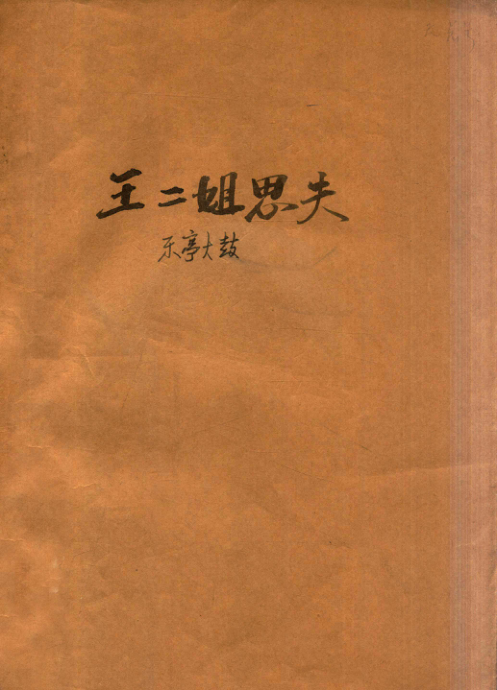 王二姐思夫
乐亭大鼓